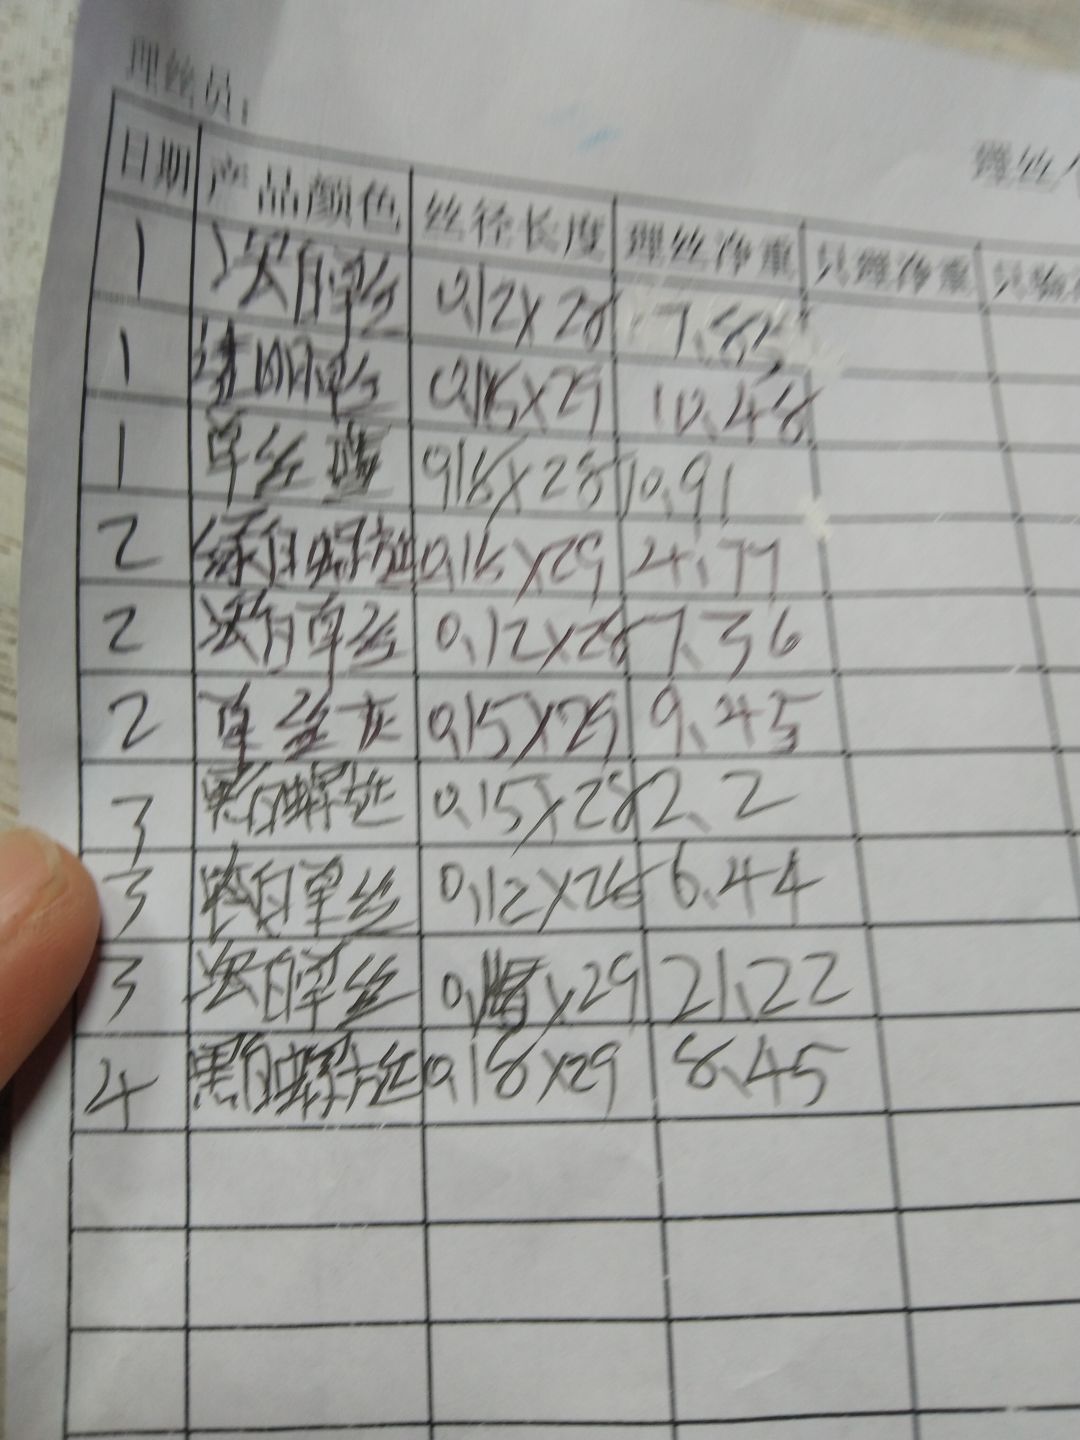 理丝员:
理丝
日期 产品颜色 丝径长度 理丝净重 只理净重
1 单丝 0.12×28 7.85
1 单丝 ×29 10.48
1 单丝蓝 0.18×28 10.91
2 绿白螺旋 0.15×29 4.77
2 浅白单丝 0.12×28 7.36
2 单丝灰 0.15×29 9.45
3 黑白螺旋 0.15×28 2.2
3 白单丝 0.12×28 6.44
3 浅白单丝 ×29 21.22
4 黑白螺旋 0.18×29 8.45